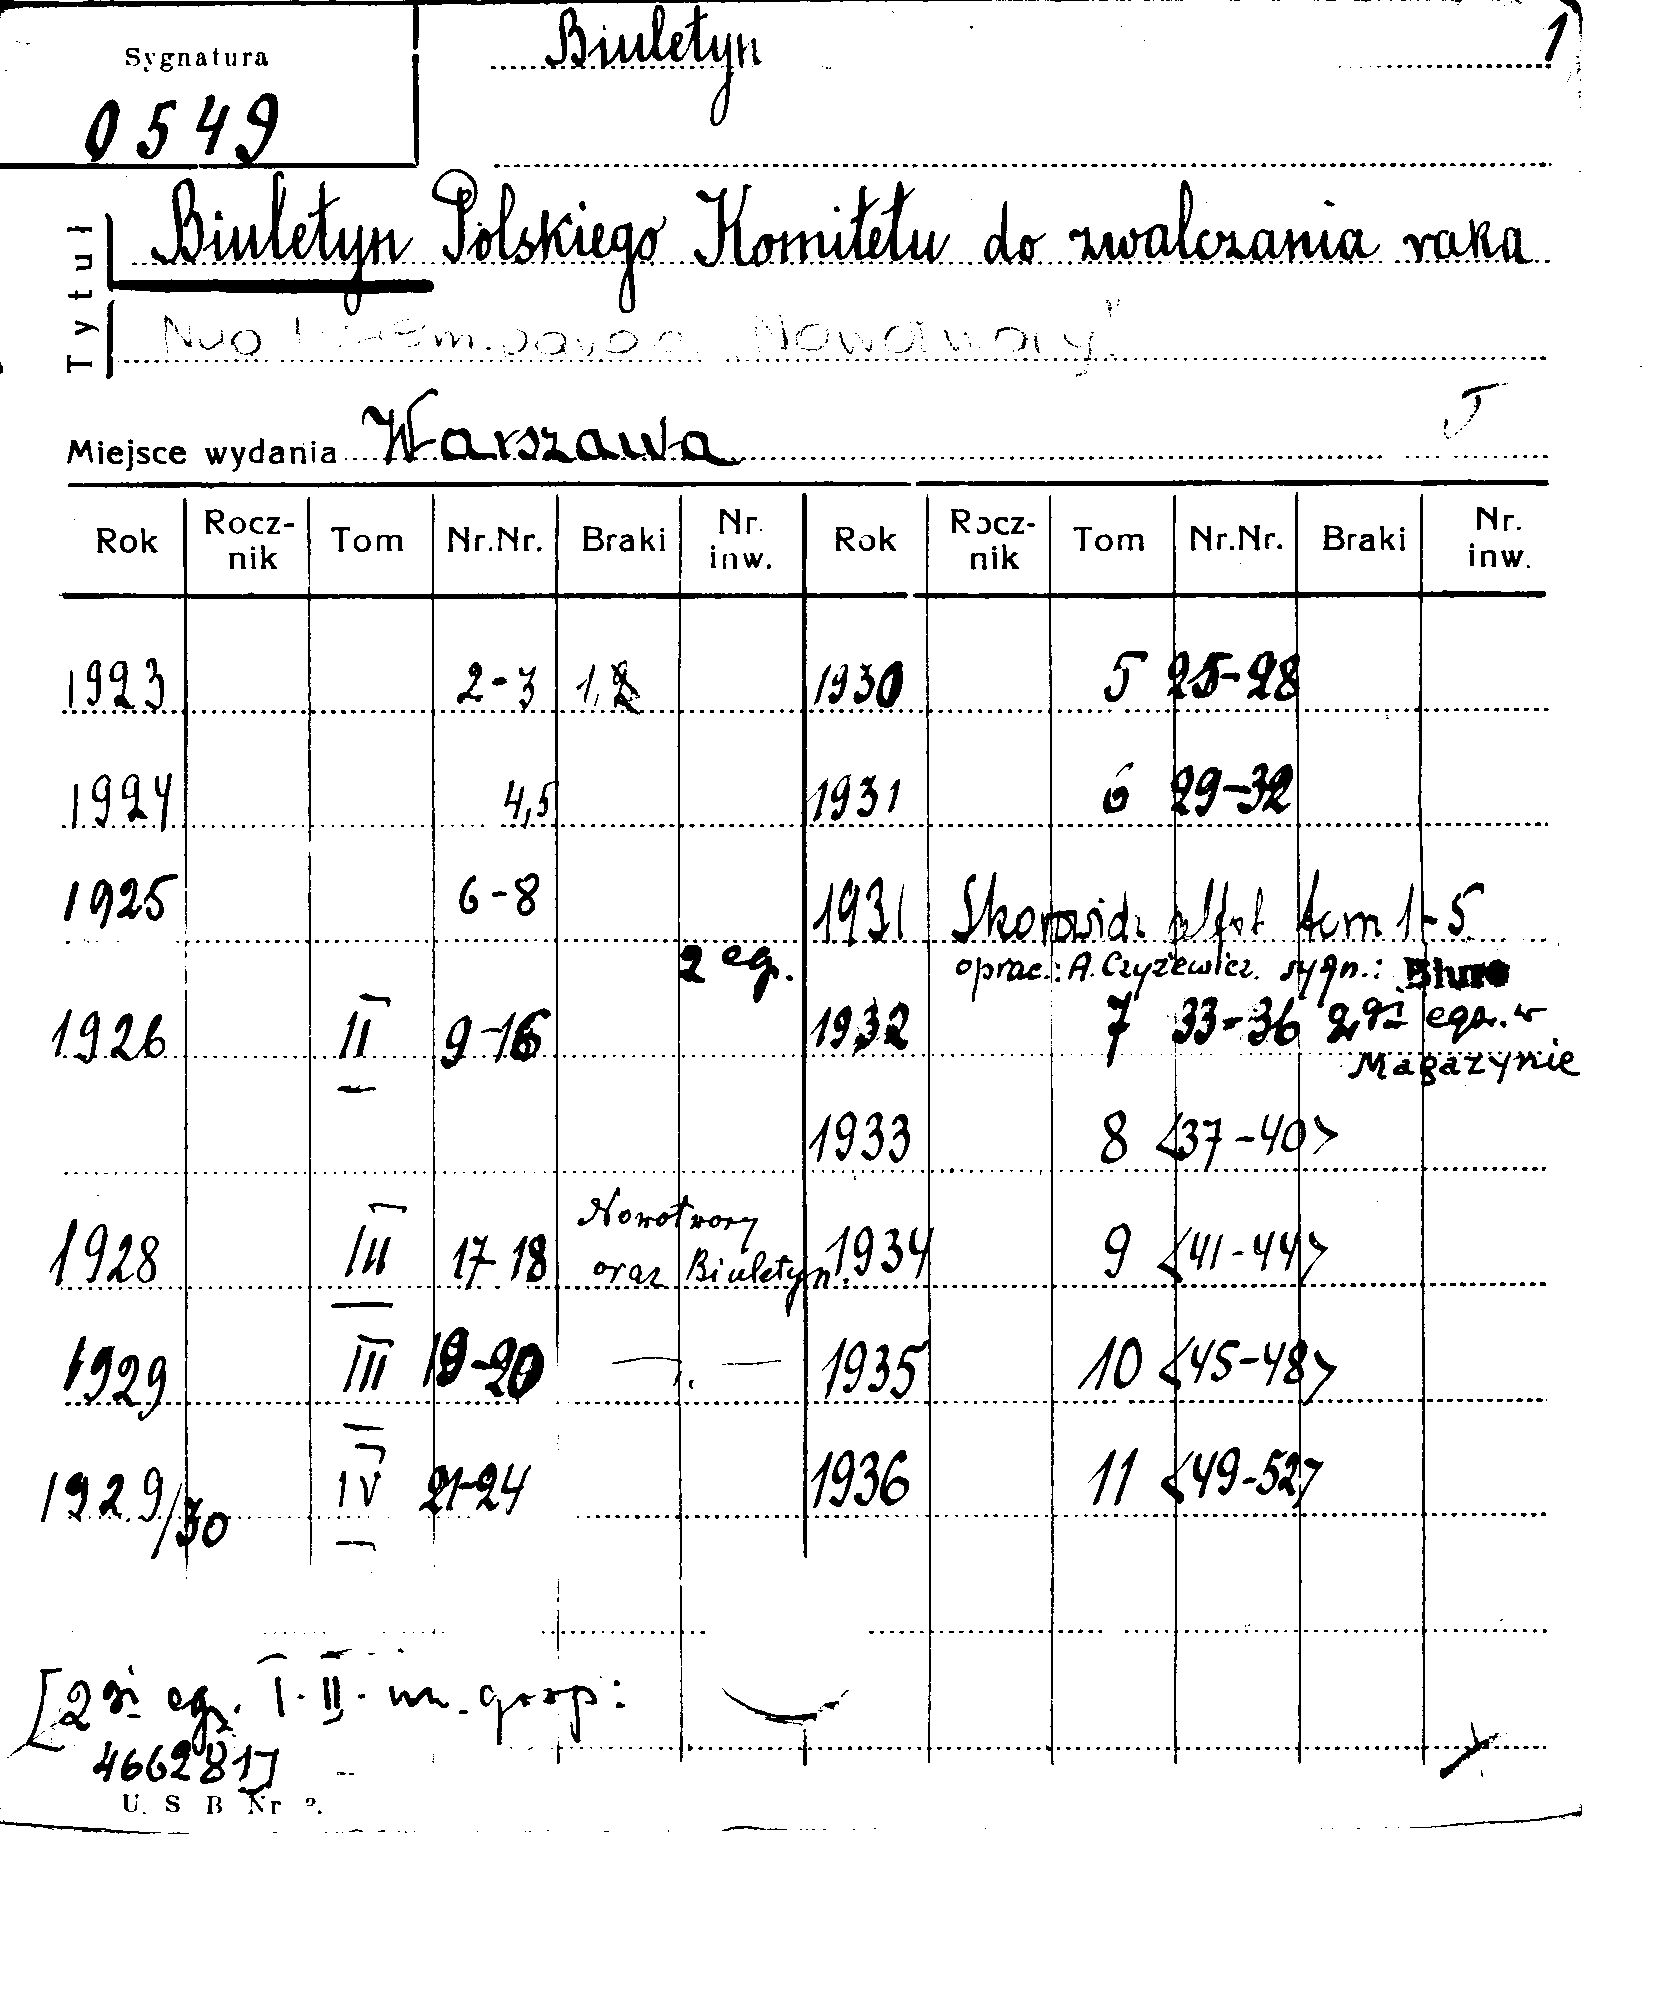 Sygnatura
0549
Biuletyn
1
Tytuł
Biuletyn Polskiego Komitetu do zwalczania raka
Miejsce wydania Warszawa
J
Rok Rocz-nik Tom Nr.Nr. Braki Nr. inw. Rok Rocz-nik Tom Nr.Nr. Braki Nr. inw.
1923 2-3 1, 1930 5 25-28
1924 4,5 1931 6 29-32
1925 6-8 1931 Skorowidz tom 1-5
2 eg. oprac.: A. Czyżewicz. sygn.: Biuro
1926 II 9-16 1932 7 33-36 2gi egz. w
Magazynie
1933 8 <37-40>
Nowotwory
1928 III 17-18 oraz Biuletyn. 1934 9 <41-44>
1929 III 19-20 —,,— 1935 10 <45-48>
1929/30 IV 21-24 1936 11 <49-52>
[2gi eg. I. II.
466281J
U. S B Nr